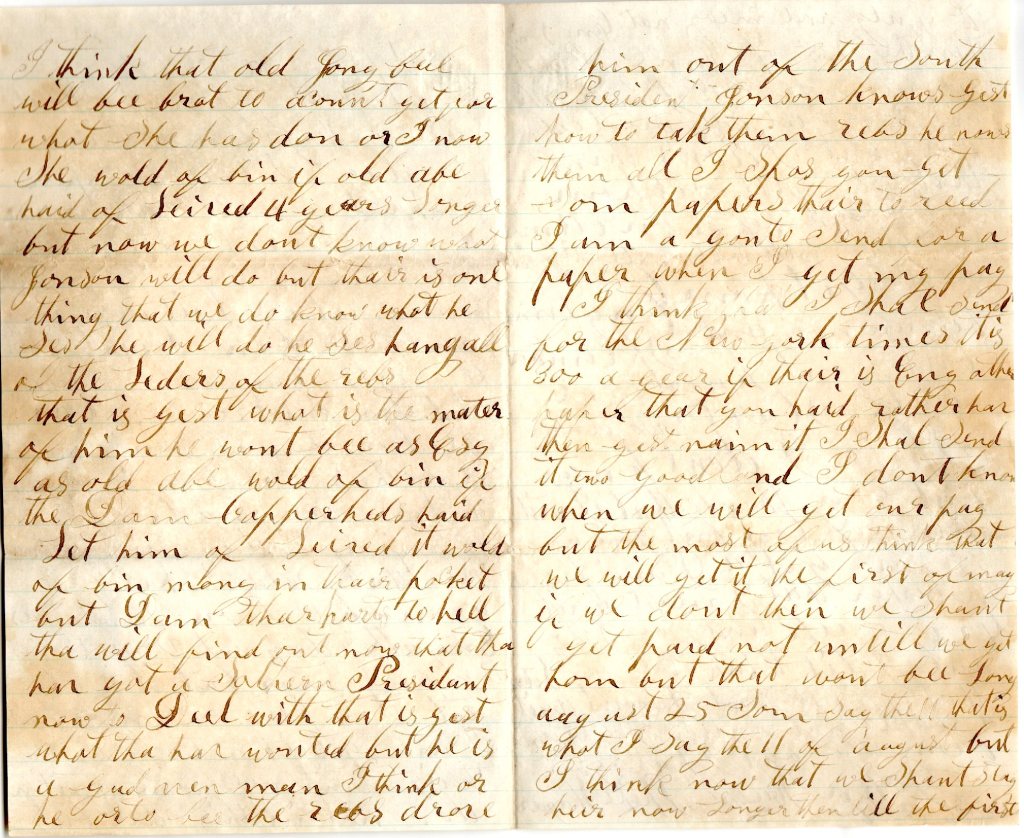 I think that old Jong bul
will bee brot to a'ount yet for
what She has don or I now
She wold of bin if old abe
haid of Leired 4 years Longer
but now we dont know what
Jonson will do but thair is one
thing that we do know what he
Ses he will do he Ses hang all
of the Leders of the rebs
that is gest what is the mater
of him he wont bee as Esy
as old abe wold of bin if
the Dam Copperheds haid
Let him of Leired it wold
of bin mony in thair pocket
but Dam thar harts to hell
tha will find out now that tha
hav got a Suthern President
now to Deel with that is gest
what tha hav wonted but he is
a man I think or
he orto bee the rebs drove
him out of the South
Presiden Jonson knows gest
how to tak them rebs he nows
them all I Spos you get
Som papers thair to reed
I am a gonto Send for a
paper when I get my pay
I think that I Shal Send
for the New york times it is
300 a year if thair is Eny other
paper that you haid rather hav
then gest naim it I Shal Send
it two Good and I dont know
when we will get our pay
but the most of us think that
we will get it the first of may
if we dont then we Shant
get paid not untill we get
hom but that wont bee Long
august 25 Som Say the 11 that is
what I Say the 11 of august but
I think now that we Shant Stay
heir now Longer then till the first